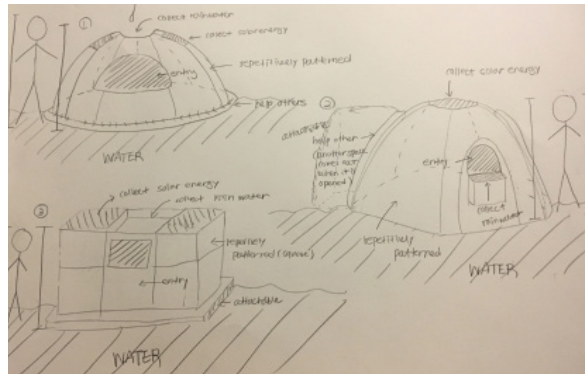 ①
collect rainwater
collect solar energy
entry
repetitively patterned
help others
WATER
②
collect solar energy
attachable
help other
(another space
comes out
when it is
opened)
entry
collect
rainwater
repetitively
patterned
WATER
③
collect solar energy
collect rain water
patterned (square)
entry
attachable
WATER